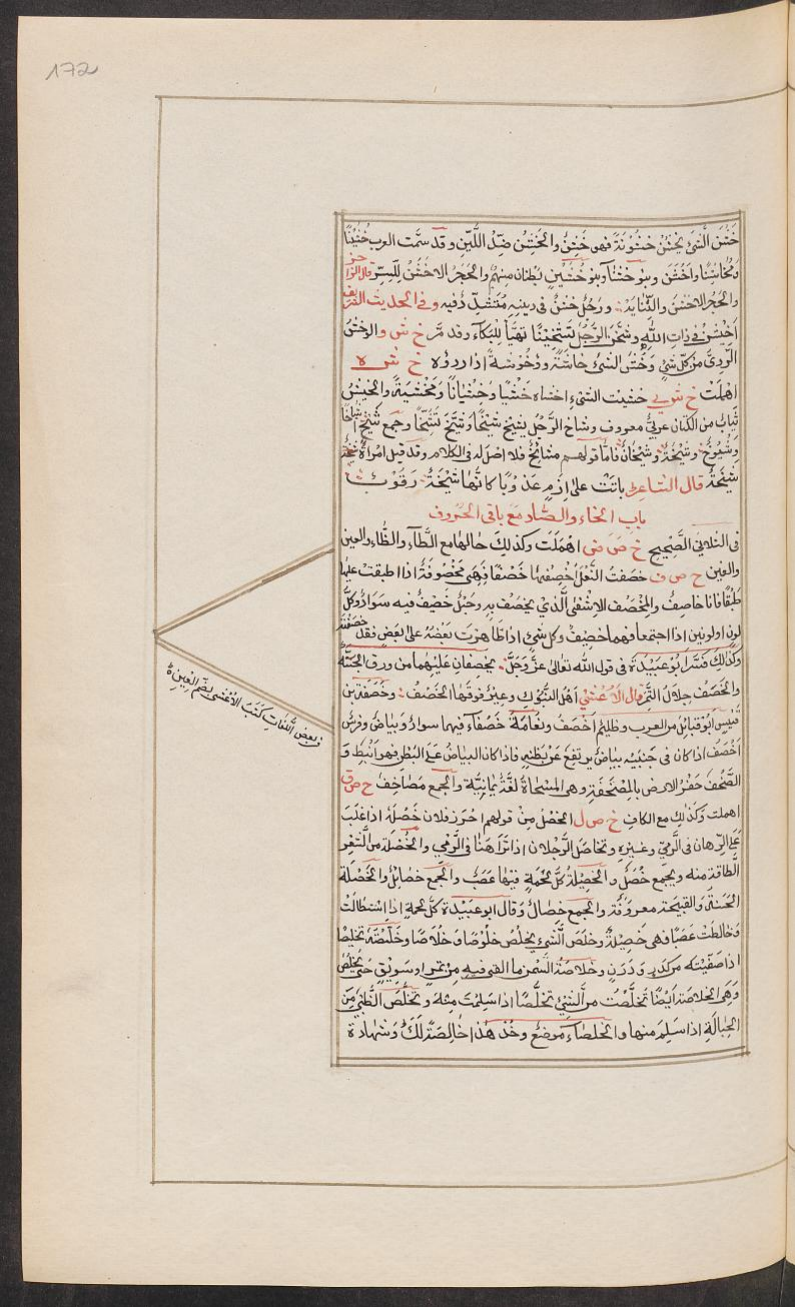 172
خَشُنَ الشَّئُ يَخشُنُ خشُونَةً فهو خَشِنُ والخشِنُ ضِدُّ اللَّيِّنِ وقد سمَّت العرب خُشَينًا
ومُخَاشِنًا واخشَن وبنو خشنَآ وبنو خُشَينٍ بُطنان منهُم والحَجَرُ الاخشَنُ لِلِّستِ قال الراجز
والحجُرُ الاخشن والثنايه ورجُل خشنٌ فى دينِهِ مُتَشدِّد فيه وفى الحديث الشريف
اُخَيشنُ فى ذاتِ اللّٰهِ وشَخَّنَ الرَّجُل تَشخِينًا تهيَّأ لِلبُكآءِ وقد مرَّ خ ش و والخشُ
الرَّدِىّ من كلّ شئٍ وخشَّ الشئُ خاشةً وخُوشة اذا رد رؤه خ ش ه
اهملت خ ش ى خشِيت الشئَ اخشاه خَشيًا وخَشيانًا ومَخشيةً والخيشُ
ثيابٌ من الكتّان عربىٌّ معروف وشاخ الرَّجُل يشيخ شيخًا وشيَّخَ تشيّخًا وجمع شيخٍ اشياخًا
وشُيُوخٌ وشِيخَةٌ وشِيخانٌ فامّا قولهم مشائخ فلا اصل له فى الكلام وقد قيل امرأة شيخة
شيخة قال الشاعر باتَت على اِرَمٍ عَذوبًا كانّها شيخَةٌ رقوبُ
باب الخاء والصّاد مع باقى الحروف
فى الثلاثى الصَّحِيح خ ص ض اهملَت وكذلك حالهما مع الطّآءِ والظّاء والعين
والغين خ ص ف خصَفتُ النَّعل اخصِفها خَصفًا فهى مَخصُوفةٌ اذا اطبقت عليها
طبَقًا فانا خاصِفٌ والمِخصَف الاِشفى الّذى يخصَف بهِ وحَبلٌ خَصِيفٌ فيه سوادٌ وكلّ
لون اولونين اذا اجتمعا فهما خصيفٌ وكل شئٍ اذا ظاهَرت بعضَهُ على بعض فقد خصَفتَهُ
وكذلك فسَّر ابو عُبَيدَة فى قول اللّٰه تعالى عزَّ وَجَلَّ يخصِفانِ عَلَيهِما من ورقِ الجنّةِ
والخصَفُ جلالُ التَّمرِ قال الاعشى اهل النُّبوك وعِيرٌ فوقها الخصَفُ وخَصَفَة بن
قيسٍ ابو قبائل من العرب وظليم اَخصَفُ ونعَامَةٌ خصفاء فيهما سوادٌ وبياضٌ وفرسٌ
اخصَف اذا كان فى جَنبَيه بياضٌ يرتفع عن بَطنهِ فاذا كان البياضُ على البَطن فهو اَنبَطُ و
الصَّخفُ حَفرُ الارض بالمِصخَفةِ وهى المِسحاةُ لغَةٌ يمانيّة والجمع مَصاخِفُ خ ص ق
اهملت وكذلك مع الكاف خ ص ل الخصلُ مِن قولهم احرز فلان خَصلَهُ اذا غلبَ
على الرِّهان فى الرَّمىِ وغيره وتخاصَل الرَّجُلان اذا تراهَنا فى الرَّمى والخُصلَة من الشَّعر
الطاقةِ منه ويجمع خُصَلٌ والخَصِيلةُ كلُّ لَحمَةٍ فيها عصَبٌ والجمع خصَائِلُ والخَصلَة
الحَسنة والقبيحة معروفةٌ والجمع خِصالٌ وقال ابو عبَيدة كلّ لحمةٍ اذا استطالت
وخالطت عَصَبًا فهى خصِيلةٌ وخلَصَ الشئُ يخلُصُ خلُوصًا وخَلَاصًا وخلَّصتُهُ تخليصًا
اذا صفّيته من كدرٍ وَدَرَنٍ وخلاصَةُ السَّمن ما القى فيه مِن تمرٍ او سَويقٍ حتى يخلُصَ
وهى الخلاصة اَيضًا تخلّصتُ من الشئِ تخلُّصًا اذا سلِمتَ مثله وتخلّصَ الظّبىُ مِن
الحِبالَةِ اذا سَلِم منها والخلصَآء موضعٌ وخُذ هذا خالِصةً لكَ وشهادة
فى بعض اللغات كتب الاعشى بضم العين